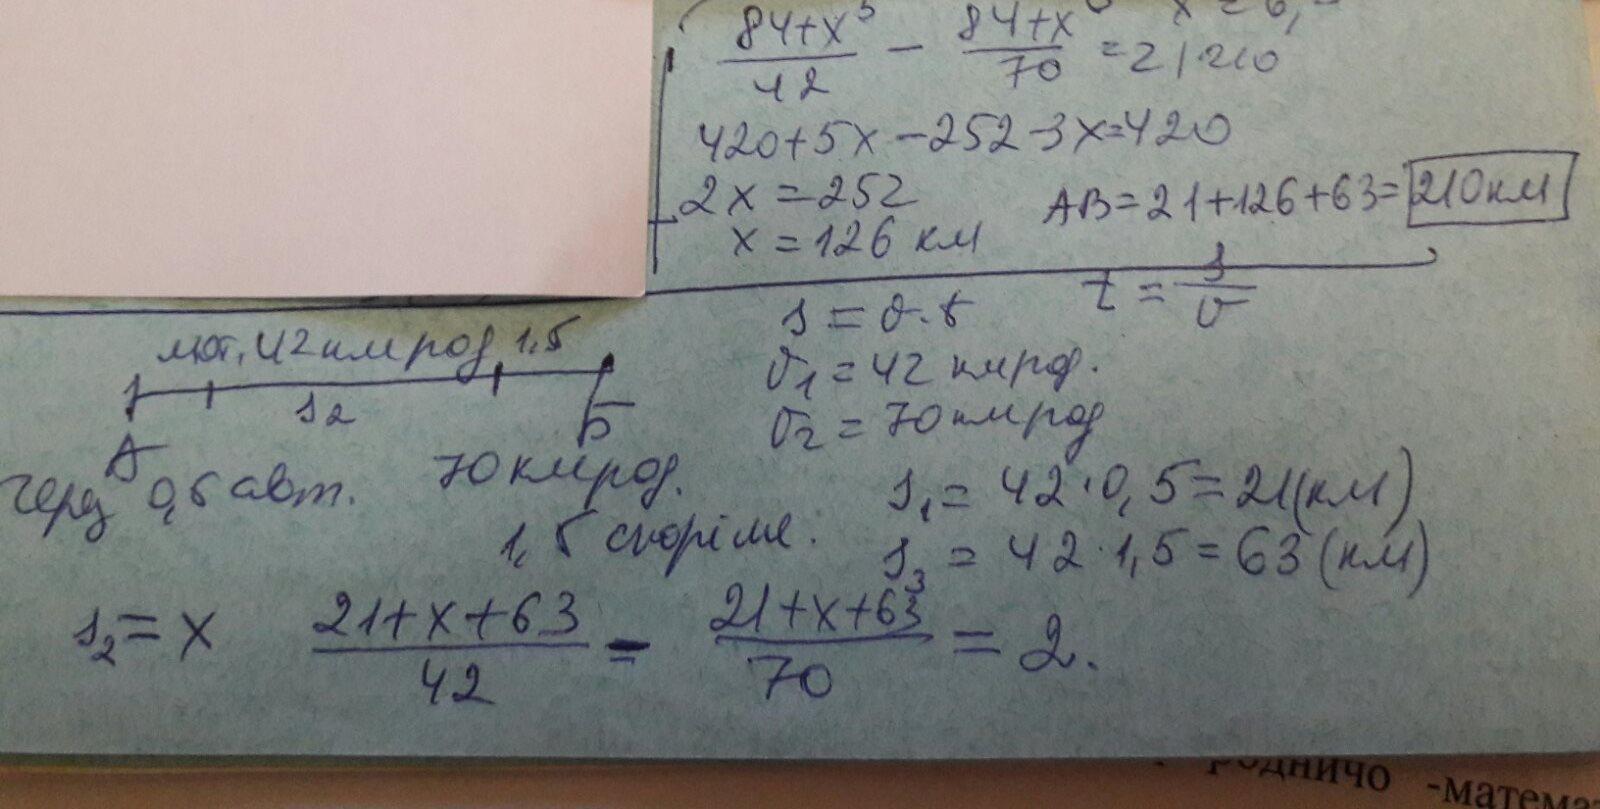 84+x⁵/42 − 84+x/70 = 2 | 210
420+5x−252−3x=420
2x=252
x=126 км
AB=21+126+63=210 км
t = s/v
s = v·t
мот. 42 км род 1,5
s2
А
Б
v1=42 км род.
v2=70 км род
через 0,5 авт. 70 км род.
1,5 скоріше.
s1= 42·0,5=21(км)
s3 = 42·1,5=63(км)
s2=x 21+x+63/42 - 21+x+63/70 = 2.
родничо -матема